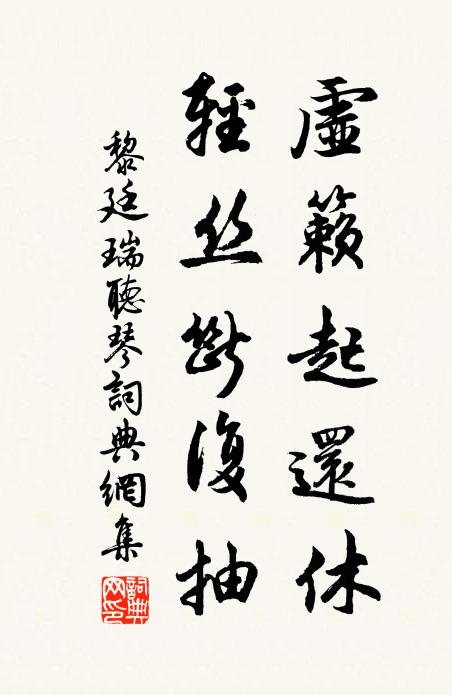 虛籟起還休
輕丝斷復抽
黎廷瑞聽琴詞典網集
詞典網印